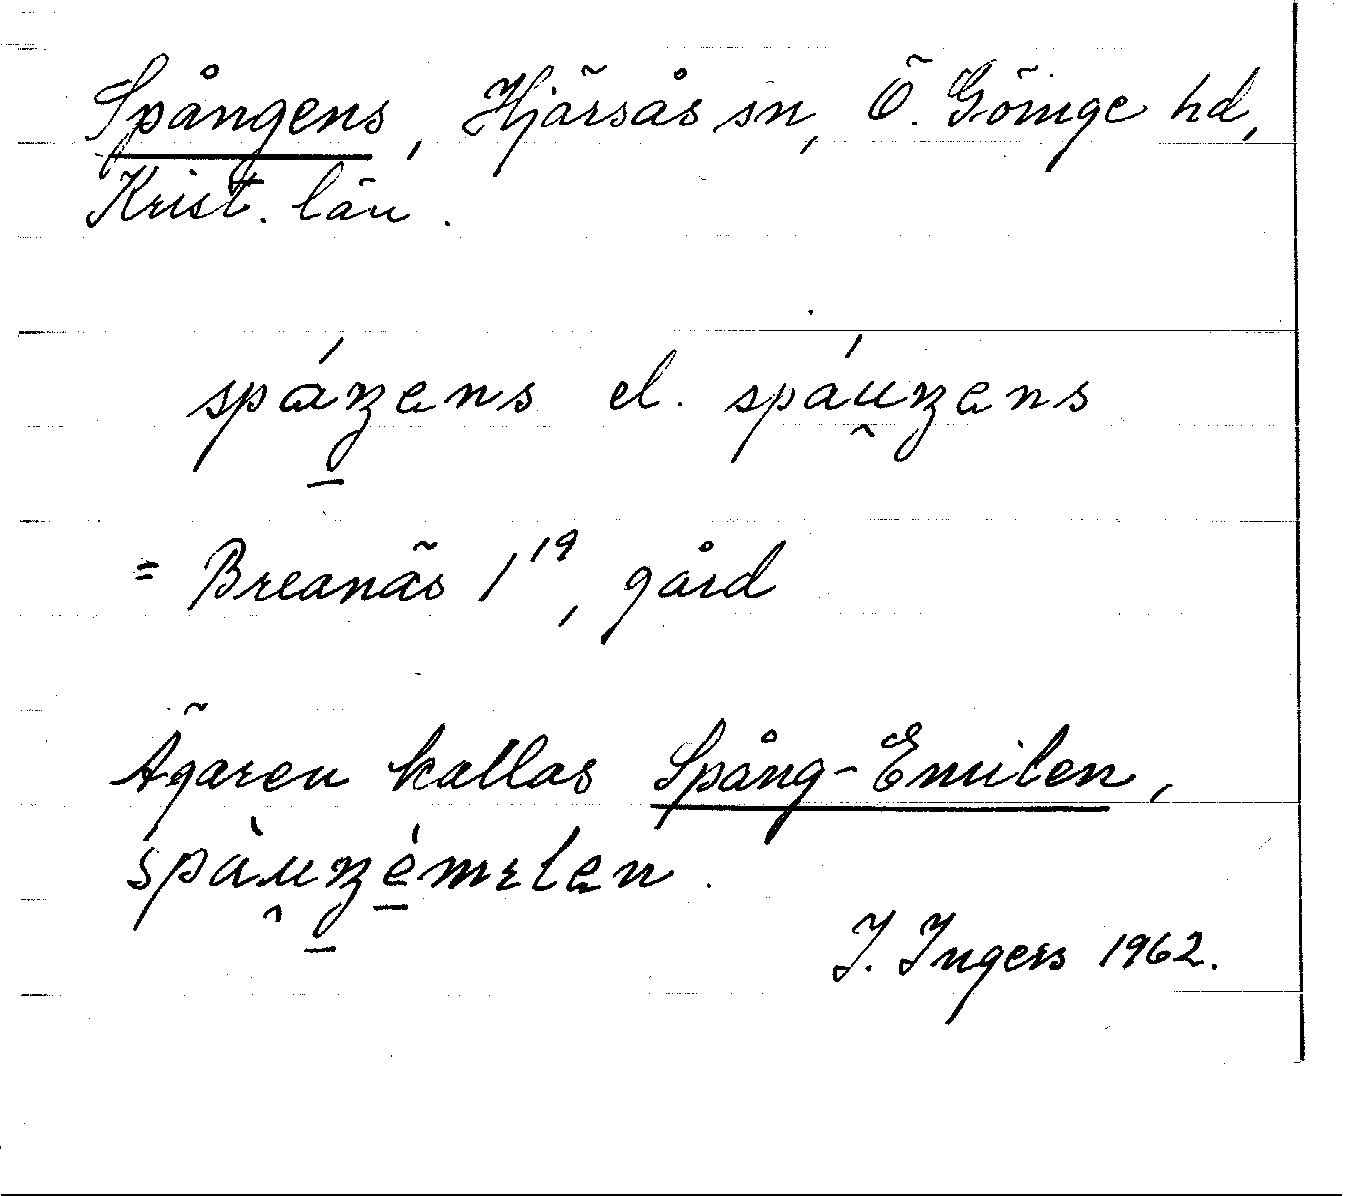 Spångens, Hjärsås sn, Ö. Göinge hd,
Krist. län.
spáŋens el. spáu̯ŋens
= Breanäs 1¹⁹, gård
Ägaren kallas Spång-Emilen,
spàu̯ŋémɪlen.
I. Ingers 1962.